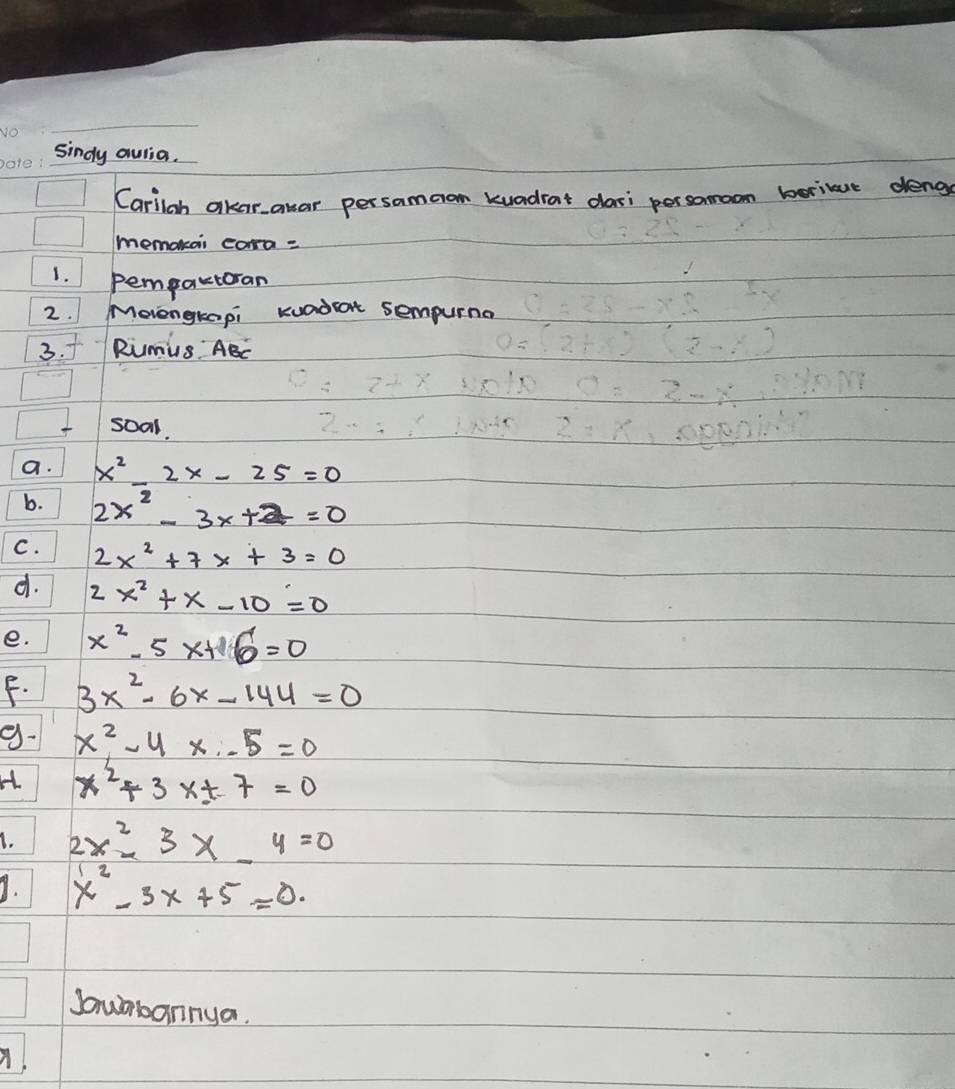 No :
Date : Sindy aulia.
Carilah akar-akar persamaan kuadrat dari persamaan berikut deng
memakai cara =
1. pempaktoran
2. Melengkapi kuadrat sempurna
3. Rumus ABC
soal.
a. x² - 2x - 25 = 0
b. 2x² - 3x + 2 = 0
c. 2x² + 7x + 3 = 0
d. 2x² + x - 10 = 0
e. x² - 5x + 6 = 0
F. 3x² - 6x - 144 = 0
g. x² - 4x - 5 = 0
H x² + 3x + 7 = 0
1. 2x² - 3x - 4 = 0
J. x² - 3x + 5 = 0.
Jawabannya.